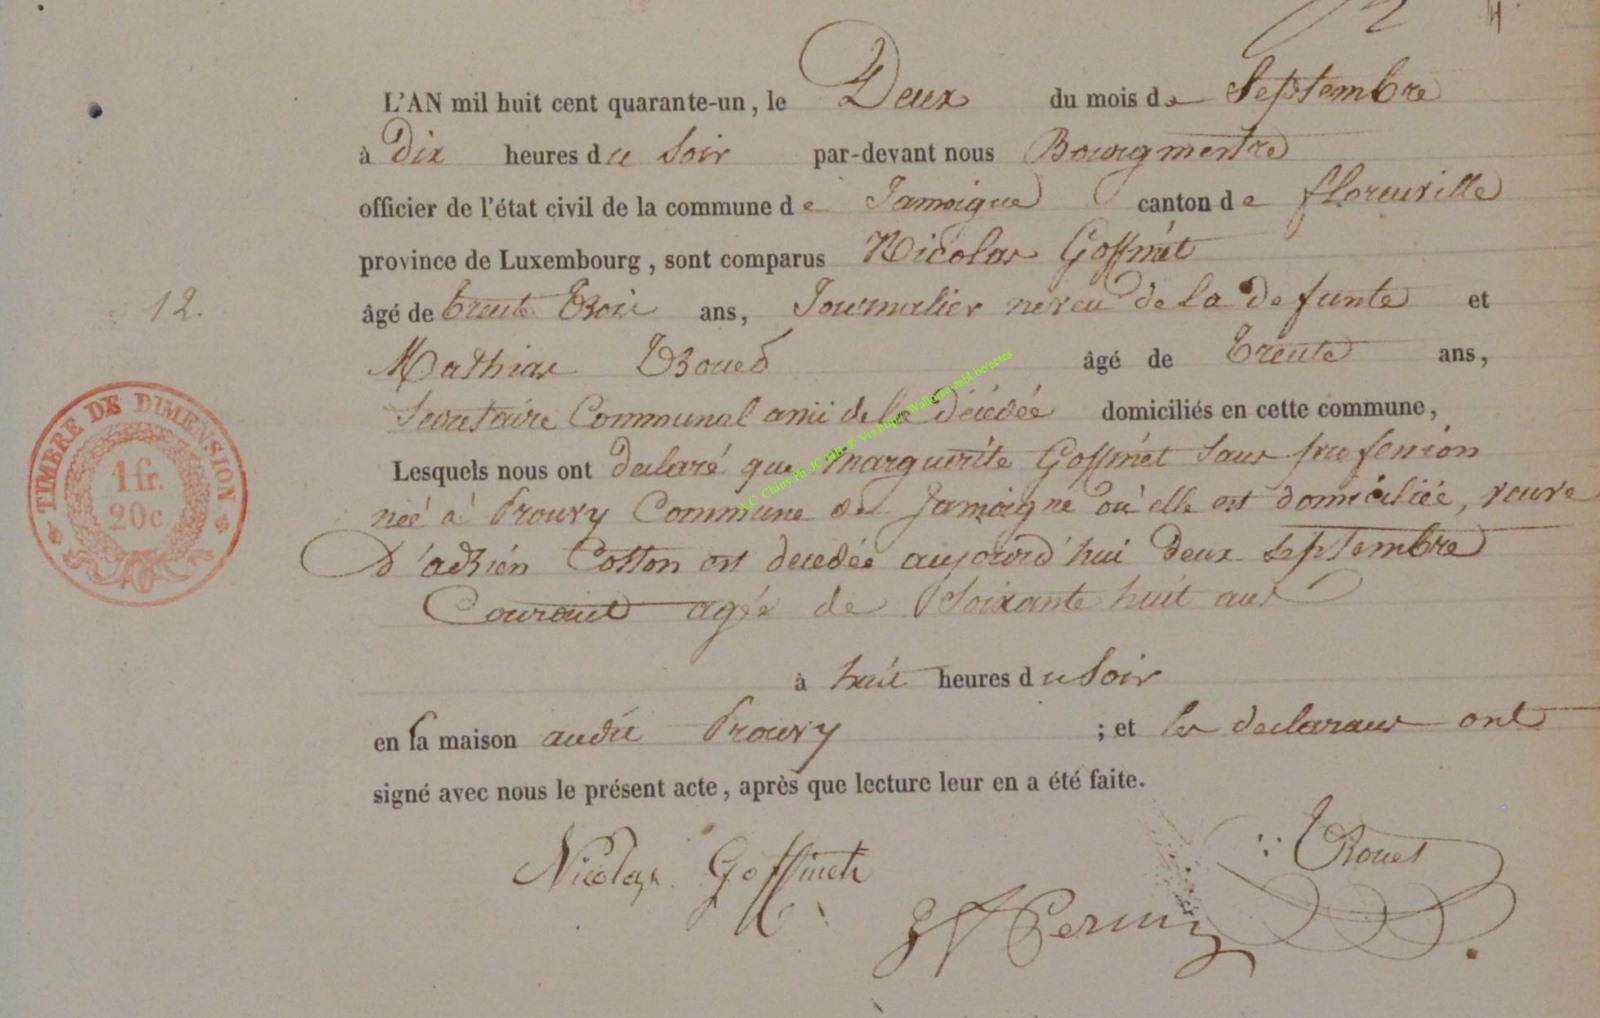 L'AN mil huit cent quarante-un, le Deux du mois de Septembre
à dix heures du soir par-devant nous Bourgmestre
officier de l'état civil de la commune de Jamoigne canton de florenville
province de Luxembourg, sont comparus Nicolas Goffinet
âgé de trente trois ans, Journalier neveu de la defunte et
12.
Mathias Thouet âgé de trente ans,
Secretaire Communal ami de la décédée domiciliés en cette commune,
Lesquels nous ont declaré que Marguerite Goffinet sans profession
née à Prouvy Commune de Jamoigne où elle est domiciliée, veuve
d'adrien Cotton est decedée aujourd'hui deux septembre
Courant agée de Soixante huit ans
à huit heures du Soir
en sa maison audit Prouvy ; et les declarans ont
signé avec nous le présent acte, après que lecture leur en a été faite.
Nicolas Goffinet
Thouet
TIMBRE DE DIMENSION
1 fr.
20c